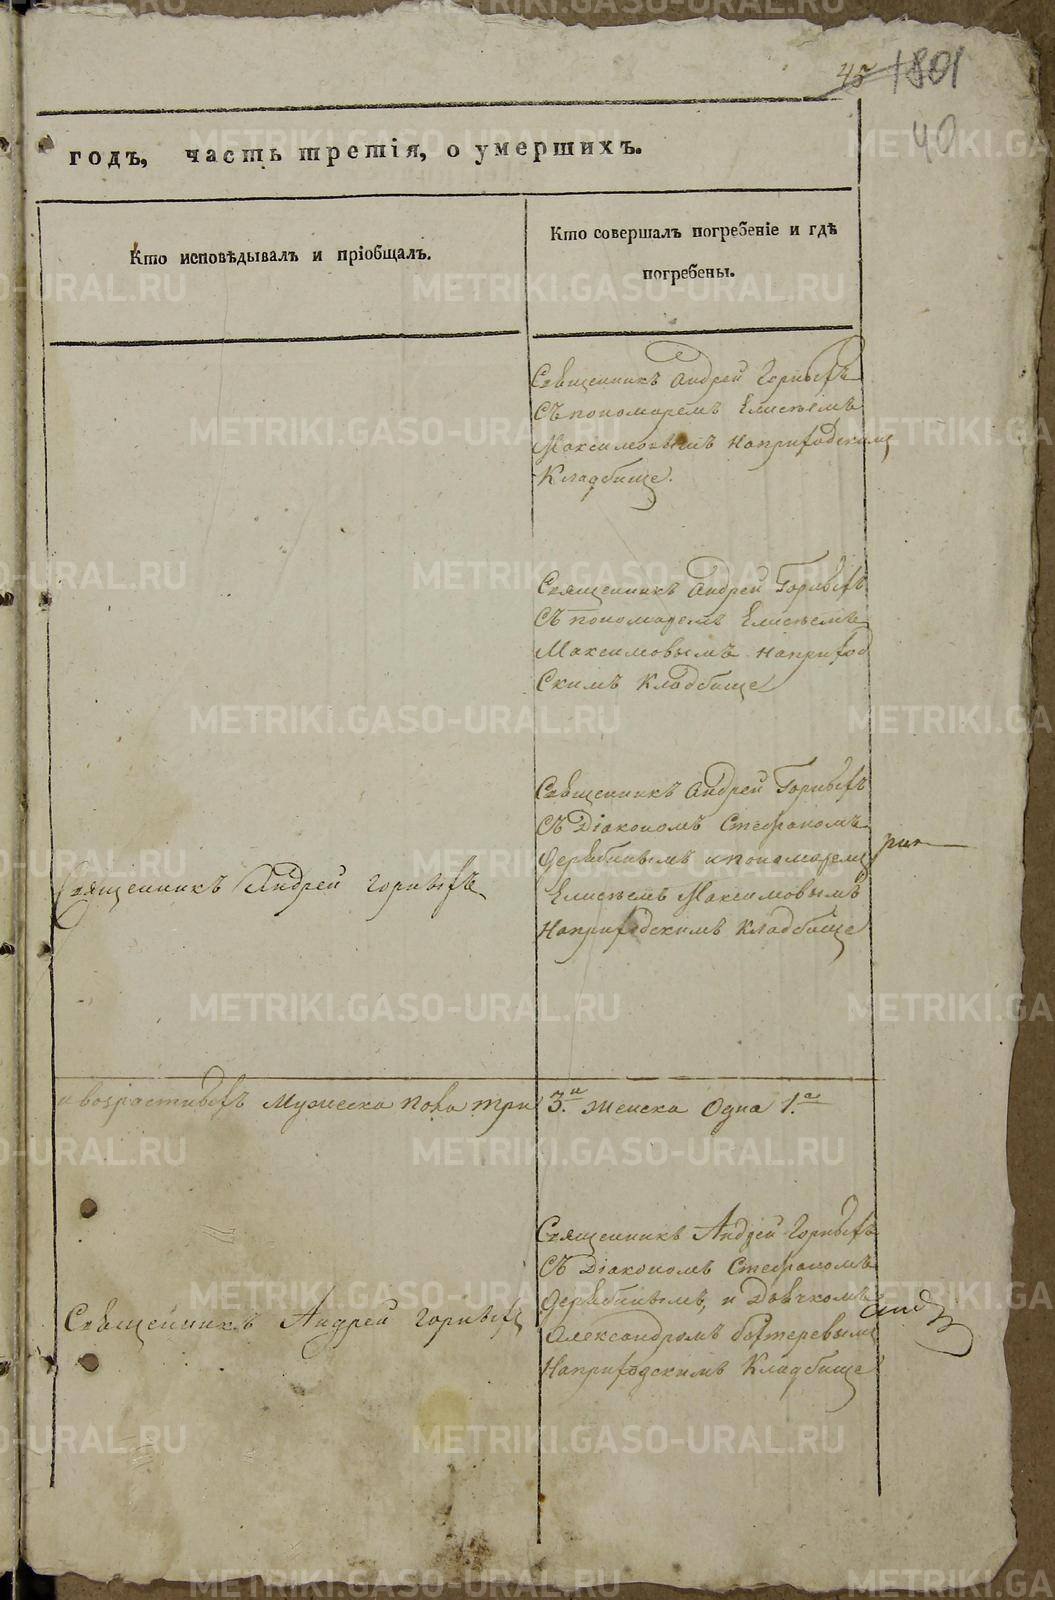 45 1801
40
годъ, часть третія, о умершихъ.
Кто исповѣдывалъ и пріобщалъ.
Кто совершалъ погребеніе и гдѣ
погребены.
Священникъ Андрей Горныхъ
Съ пономаремъ Елисѣемъ
Максимовымъ наприходскимъ
Кладбище.
Священникъ Андрей Горныхъ
Съ пономаремъ Елисѣемъ
Максимовымъ наприход
Скимъ Кладбище
Священникъ Андрей Горныхъ
Священникъ Андрей Горныхъ
Съ Діакономъ Стефаномъ
Дерябинымъ ипономаремъ
Елисѣемъ Максимовымъ
Наприходскимъ Кладбище
рип
и возрастныхъ Мужеска пола три 3.и Женска Одна 1.а
Священникъ Андрей Горныхъ
Священникъ Андрей Горныхъ
Съ Діакономъ Стефаномъ
Дерябинымъ, и Дьячкомъ
Александромъ
Наприходскимъ Кладбище
METRIKI.GASO-URAL.RU